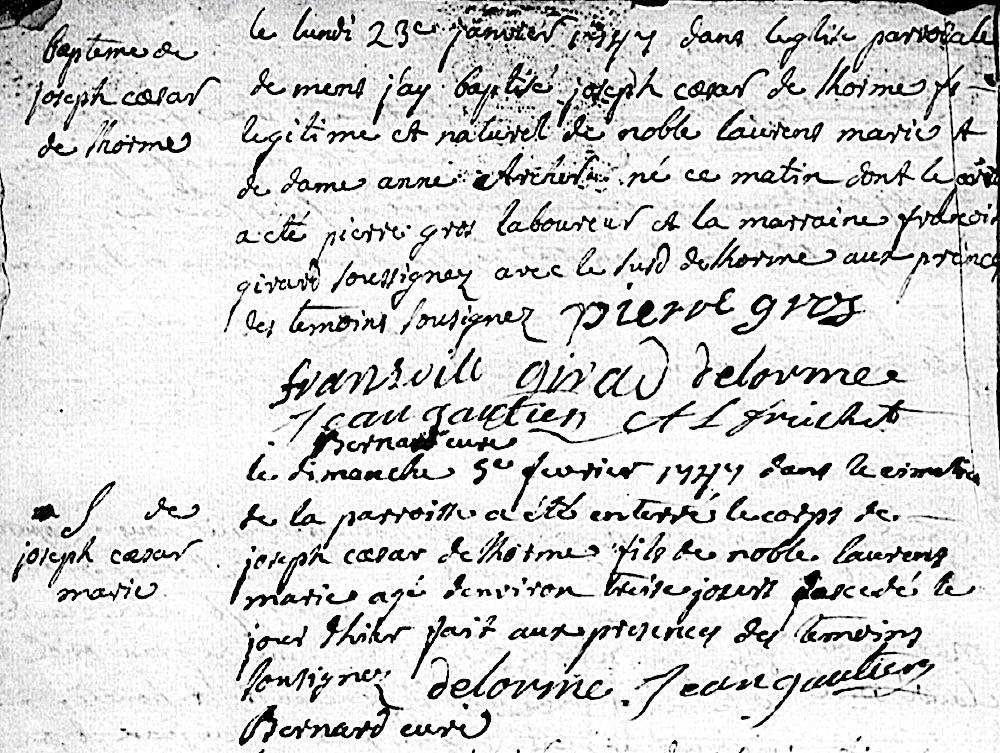 bapteme de
joseph cæsar
de lhorme
le lundi 23e janvier 1747 dans leglise parroissale
de mens j'ay baptisé joseph cæsar de lhorme fs
legitime et naturel de noble laurens marie et
de dame anne né ce matin dont le
a eté pierre gros laboureur et la marraine françoise
girard soussignez avec le susd delhorme aux presence
des temoins sousignez pierre gros
giraud delorme
Jean gautier
Bernard curé
S de
joseph cæsar
marie
le dimanche 5e fevrier 1747 dans le cimetiere
de la parroisse a eté enterré le corps de
joseph cæsar delhorme fils de noble laurens
marie agé denviron treise jours decedé le
jour dhier fait aux presences des temoins
sousignez delorme Jean gautier
Bernard curé